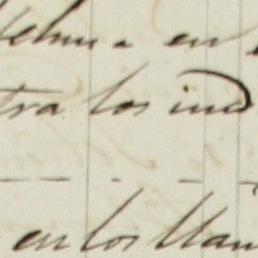 en
tra los ind
en los llan